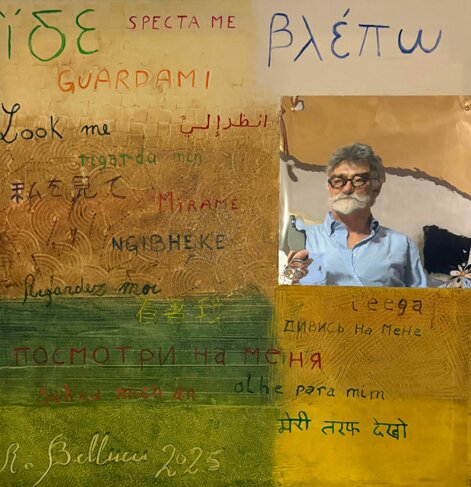 ϊδε SPECTA ME βλέπω
GUARDAMI
Look me انظر إليّ
rigardu min
私を見て MIRAME
NGIBHEKE
Regardez moi
看著我 ieega
Дивись на мене
посмотри на меня
olhe para mim
मेरी तरफ देखो
R. Bellucci 2025